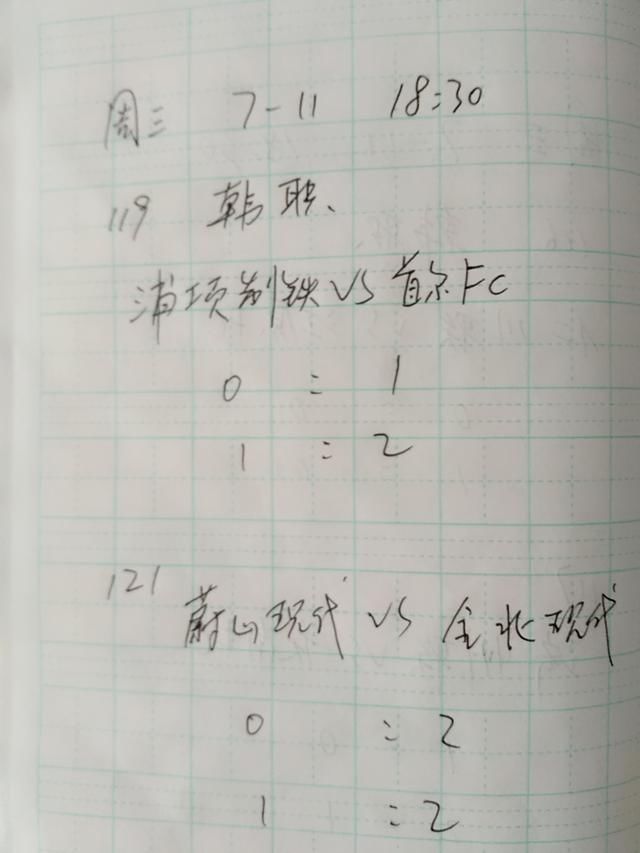 周三 7-11 18:30
119 韩联、
浦项制铁 VS 首尔FC
0 : 1
1 : 2
121
蔚山现代 VS 全北现代
0 : 2
1 : 2